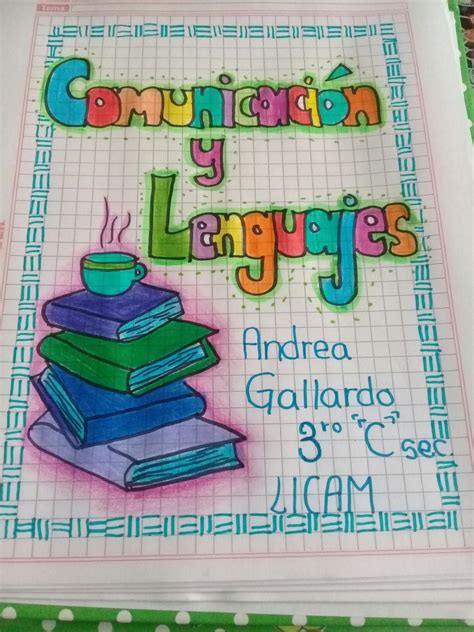 Tema:
Comunicación
y
Lenguajes
Andrea
Gallardo
3ro "C" sec.
LICAM